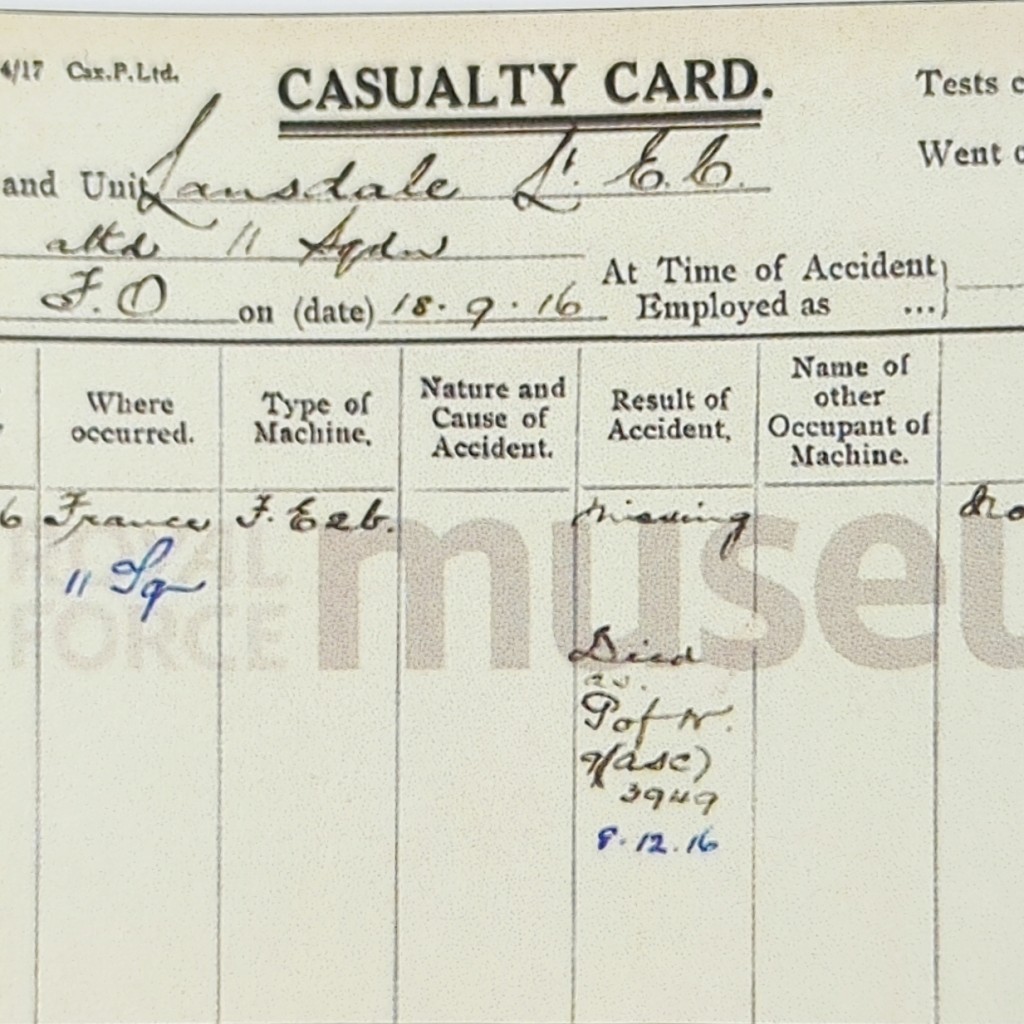 4/17 Cax.P.Ltd.
CASUALTY CARD.
Tests c
Went c
and Unit Lansdale Lt. E.C.
attd 11 Sqdn
F.O on (date) 18.9.16 At Time of Accident
Employed as ...
Where occurred.
Type of Machine,
Nature and Cause of Accident.
Result of Accident,
Name of other Occupant of Machine.
6 France F.E2b. Missing
11 Sq
Died
as
P of W.
9(asc)
3949
8.12.16
ROYAL
FORCE
museu